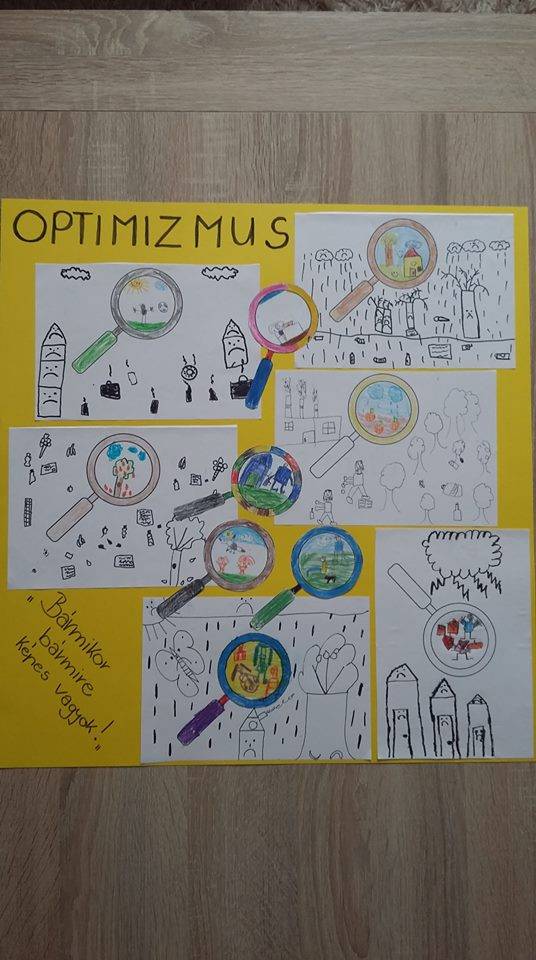 OPTIMIZMUS
"Bármikor
bármire
képes vagyok!"